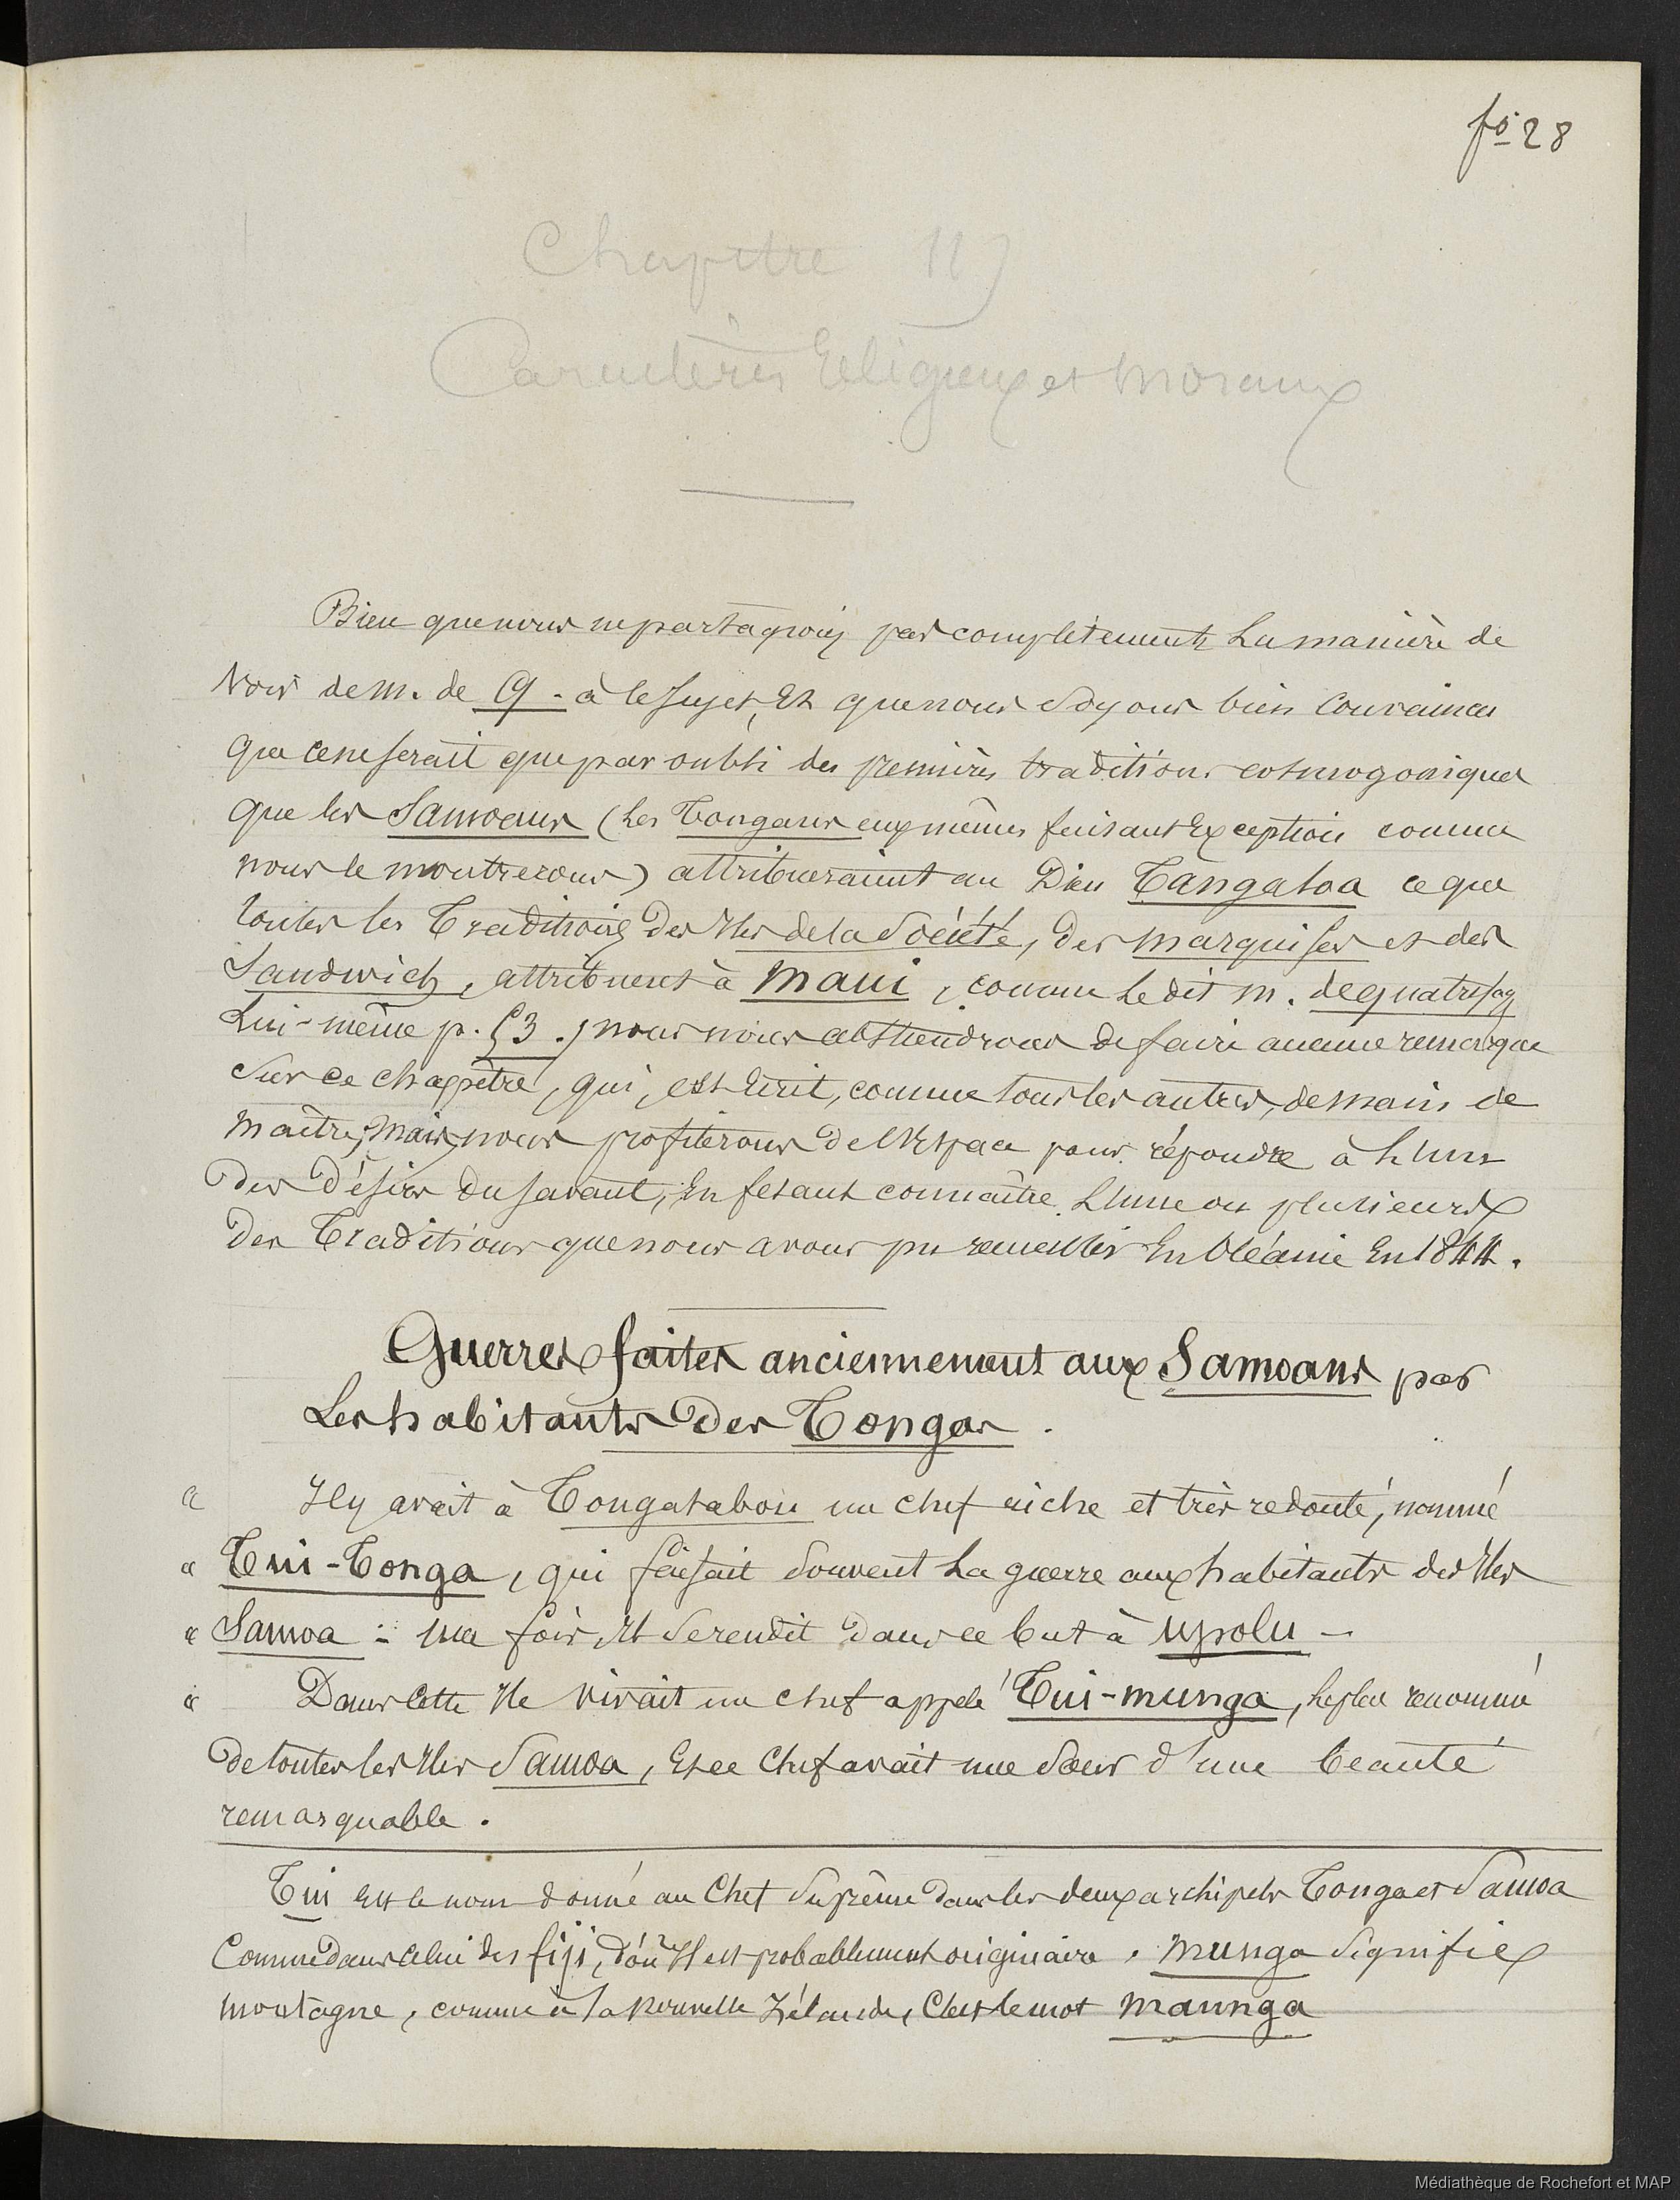 fo 28
Chapitre III
Caractères Religieux et Moraux
Bien que nous ne partagions pas complètement La manière de
Voir de m. de Q. à ce Sujet, Et que nous Soyons bien Convaincu
Que ce ne serait que par oubli des premières traditions cosmogoniques
Que les Samoans (Les Tongans eux mêmes faisant Exception comme
nous le montrerons) attribueraient au Dieu Tangaloa ce que
toutes les Traditions Des Iles de la Société, Des Marquises et des
Sandwich, attribuent à Maui, comme Le dit m. de quatrefag
Lui-même p. 53., nous nous abstiendrons de faire aucune remarque
Sur ce chapitre, qui, est Ecrit, comme tous les autres, de main de
Maître; Mais, nous profiterons De l'Espace pour répondre à L'un
Des Désirs du Savant, En fesant connaître L'une ou plusieurs
Des Traditions que nous avons pu recueillir En Océanie En 1844.
Guerres faites anciennement aux Samoans par
Les habitants Des Tongas.
" Il y avait à Tongatabou un chef riche et très redouté, nommé
" Tui-Tonga, qui faisait Souvent La guerre aux habitants des Iles
" Samoa : une fois, Il Se rendit Dans ce but à Upolu –
" Dans Cette Ile vivait un chef appelé Tui-munga, le plus renommé
De toutes les Iles Samoa, Et ce Chef avait une Soeur d'une beauté
remarquable.
Tui Est le nom donné au Chef Suprême Dans les deux archipels Tonga et Samoa
Comme Dans Celui des fiji, D'où Il est probablement originaire. Munga Signifie
Montagne, comme à la Nouvelle Zélande, C'est le mot Maunga
Médiathèque de Rochefort et MAP